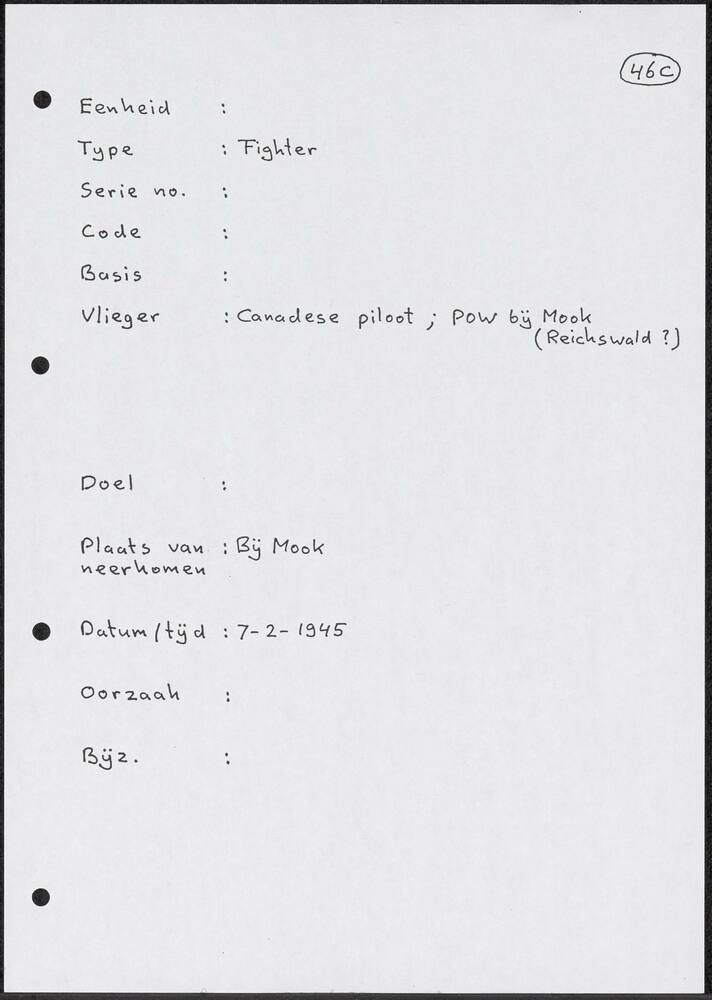 46C
Eenheid :
Type : Fighter
Serie no. :
Code :
Basis :
Vlieger : Canadese piloot ; POW bij Mook
(Reichswald ?)
Doel :
Plaats van : Bij Mook
neerkomen
Datum/tijd : 7-2-1945
Oorzaak :
Bijz. :